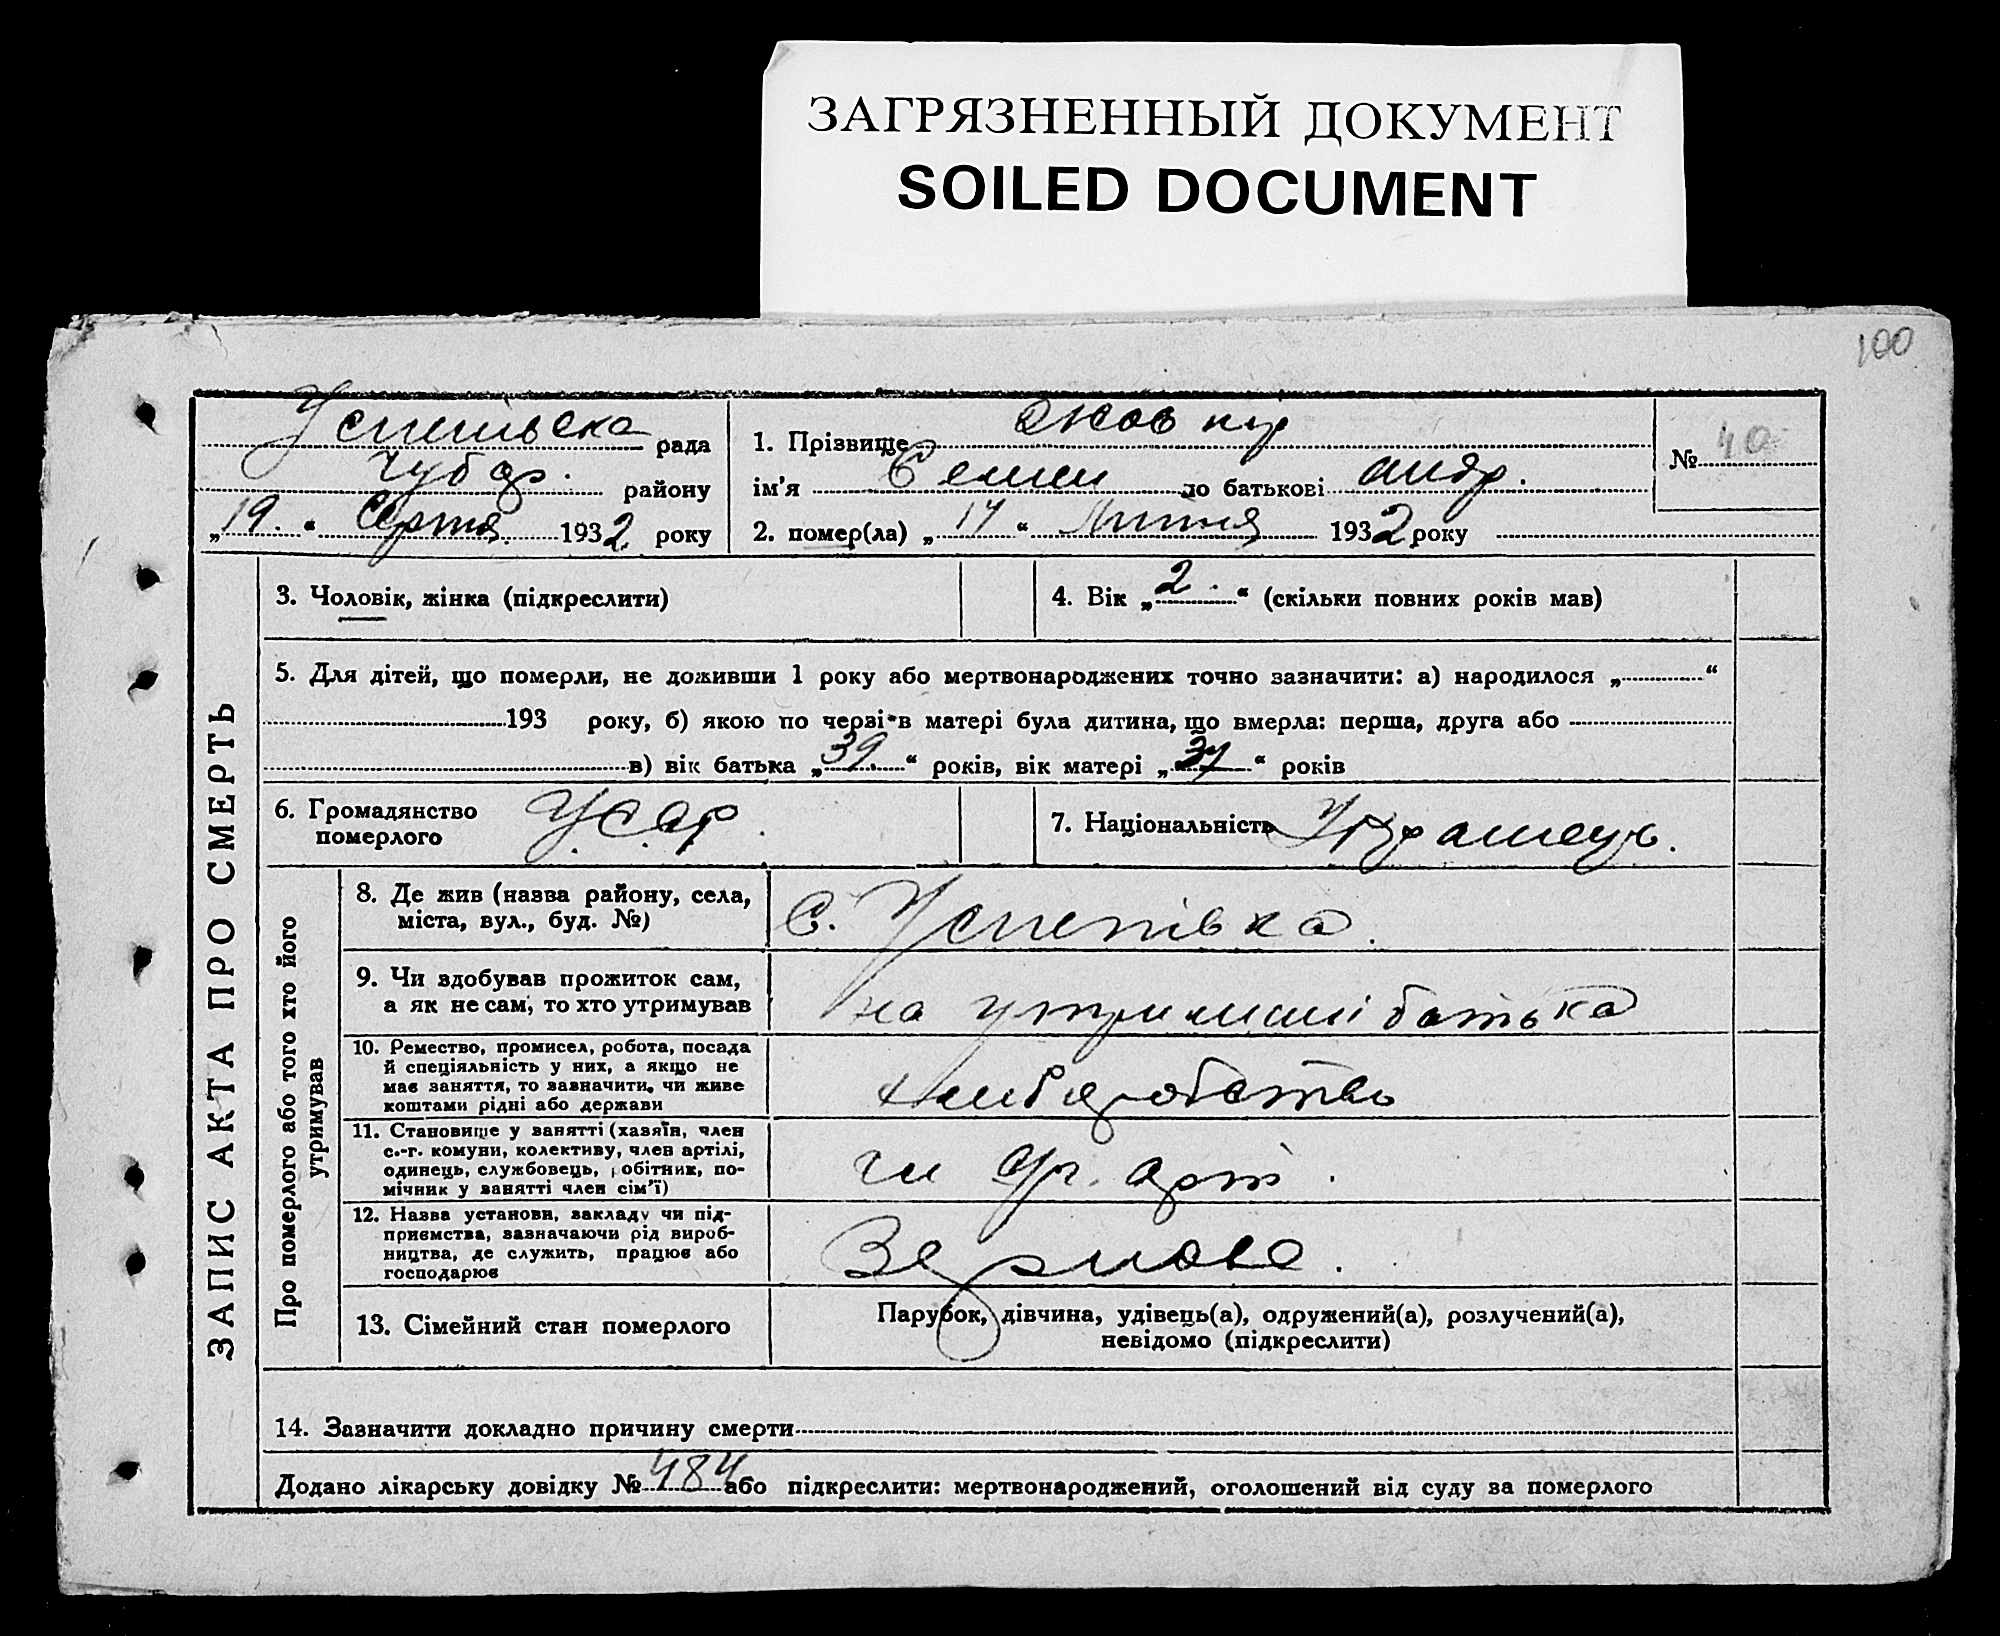 ЗАГРЯЗНЕННЫЙ ДОКУМЕНТ
SOILED DOCUMENT
100
Успепівска рада
Чубар. району
„19.“ Серпня 1932. року
1. Прізвище
ім'я Семен по батькові андр.
№ 40
2. помер(ла) „14“ Липня 1932 року
ЗАПИС АКТА ПРО СМЕРТЬ
3. Чоловік, жінка (підкреслити)
4. Вік „2.“ (скільки повних років мав)
5. Для дітей, що померли, не доживши 1 року або мертвонароджених точно зазначити: а) народилося „ “
193 року, б) якою по черзі в матері була дитина, що вмерла: перша, друга або
в) вік батька „39.“ років, вік матері „37“ років
6. Громадянство
померлого
УССР.
7. Національність Украінець.
Про померлого або того хто його
утримував
8. Де жив (назва району, села,
міста, вул., буд. №)
С. Успепівка.
9. Чи здобував прожиток сам,
а як не сам, то хто утримував
на утриманні батька
10. Ремество, промисел, робота, посада
й спеціяльність у них, а якщо не
має заняття, то зазначити, чи живе
коштами рідні або держави
хлиборобство
11. Становище у занятті (хазяїн, член
с.-г. комуни, колективу, член артілі,
одинець, службовець, робітник, по-
мічник у занятті член сім'ї)
чл арт.
12. Назва установи, закладу чи під-
приємства, зазначаючи рід вироб-
ництва, де служить, працює або
господарює
Зернове.
13. Сімейний стан померлого
Парубок, дівчина, удівець(а), одружений(а), розлучений(а),
невідомо (підкреслити)
14. Зазначити докладно причину смерти
Додано лікарську довідку № 484 або підкреслити: мертвонароджений, оголошений від суду за померлого